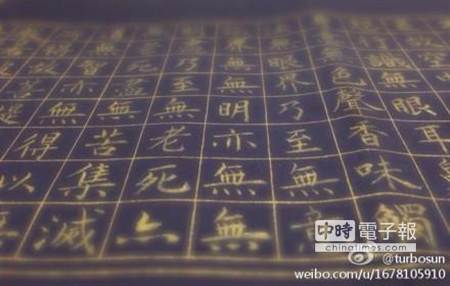 識無眼耳
色聲香味觸
無眼界乃至無意
界無無明亦無無
乃至無老死亦
死盡無苦集滅
無智亦無得以無
中時電子報
chinatimes.com
@turbosun
weibo.com/u/1678105910